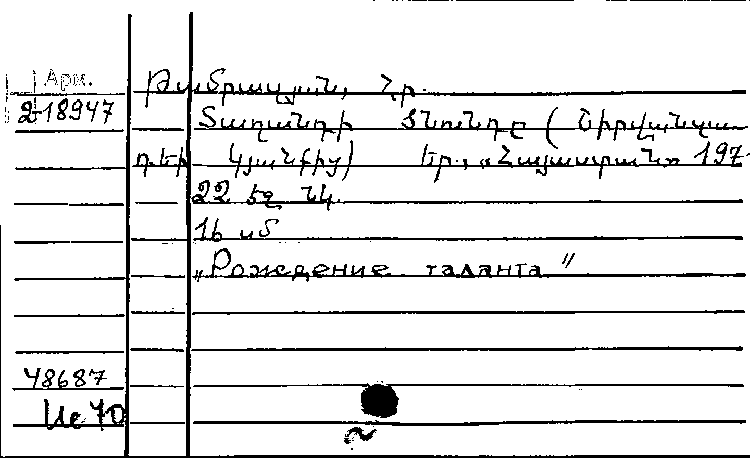 Арм.
2-18947
Թամրազյան, Հր.
Տաղանդի ծնունդը (Շիրվանզա-
դեի կյանքից) Եր., «Հայաստան» 197
22 էջ նկ.
16 սմ
„Рождение таланта"
48687
Ис 70